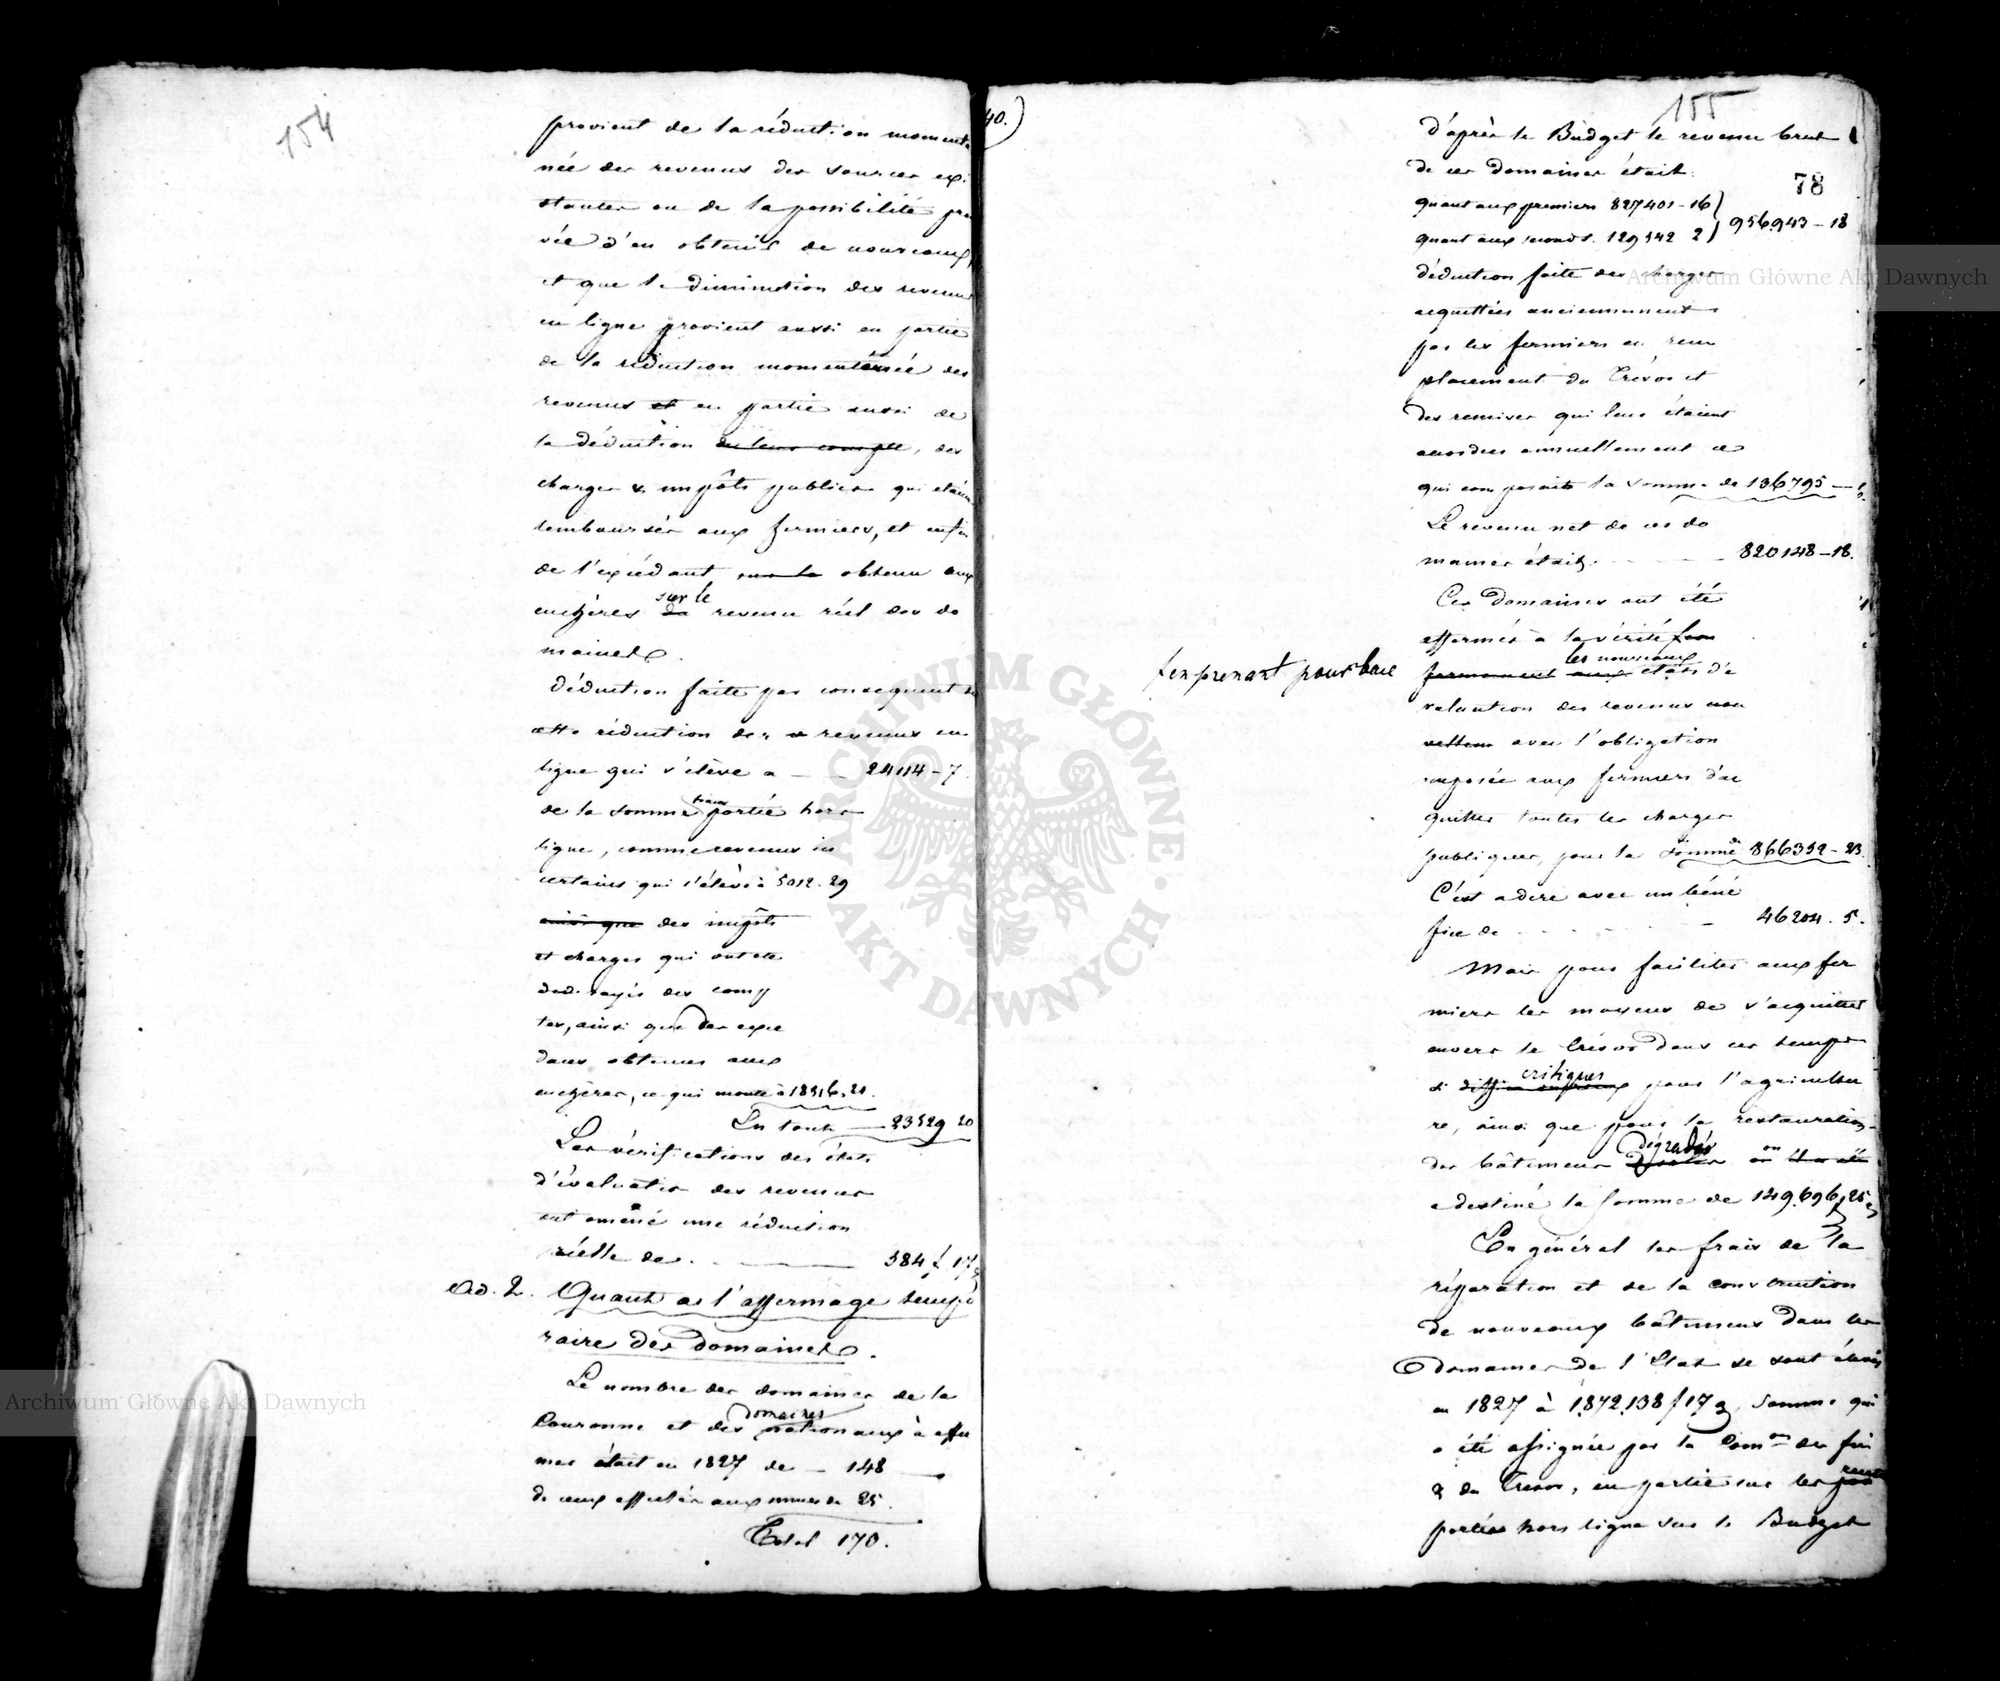 154
provient de la réduction momenta
née des revenus des sources exi
stantes ou de la possibilité prou
vée d'en obtenir de nouveaux,
et que la diminution des revenus
en ligne provient aussi en partie
de la réduction momentanée des
revenus et en partie aussi de
la déduction de leur compte, des
charges & impôts publics qui étaient
remboursés aux fermiers, et enfin
de l'excédant sur le obtenu aux
enchères sur le revenu réel des do
maines.
Déduction faite par conséquent de
cette réduction des revenus en
ligne qui s'élève a — 24114-7.
de la somme portée hors
ligne, comme revenus in
certains qui s'élève à 5012.29
ainsi que des impôts
et charges qui ont été
des comp
tes, ainsi que des excé
dans obtenus aux
enchères, ce qui monte à 18516.21.
En tout — 23529 20
Les vérifications des états
d'évaluation des revenus
ont amené une réduction
réelle de — 584 f 17
Ad. 2. Quant à l'affermage tempo
raire des domaines.
Le nombre des domaines de la
Couronne et des domaines nationaux à affer
mer était en 1827 de — 148 —
de ceux affectés aux mines de 25.
Total 170.
40.)
155
78
D'après le Budget le revenu brut
de ces domaines était
quant aux premiers 827401-16
quant aux seconds. 129542 2
956943-18
déduction faite des charges
acquittées anciennement
par les fermiers en rem
placement du Trésor et
des remises qui leur étaient
accordées annuellement ce
qui composait la somme de 136795 —
Le revenu net de ces do
maines était — 820148-18.
Ces domaines ont été
affermés à la vérité
f en prenant pour base
les nouveaux états d'é
valuation des revenus nou
vellem avec l'obligation
imposée aux fermiers d'ac
quitter toutes les charges
publiques, pour la somme de 866352-23.
C'est a dire avec un béné
fice de — 46204.5.
Mais pour faciliter aux fer
miers les moyens de s'acquitter
envers le trésor dans ces temps
si critiques pour l'agricultu
re, ainsi que pour la restauration
des bâtimens dégradés on
a destiné la somme de 149.696,25
En général les frais de la
réparation et de la construction
de nouveaux bâtimens dans les
domaines de l'Etat se sont élevés
en 1827 à 1,872,138 f 17 g, somme qui
a été assignée par la Comon des fin
& du Trésor, en partie sur les
portées hors ligne sur le Budget
Archiwum Główne Akt Dawnych
Archiwum Główne Akt Dawnych
ARCHIWUM GŁÓWNE AKT DAWNYCH